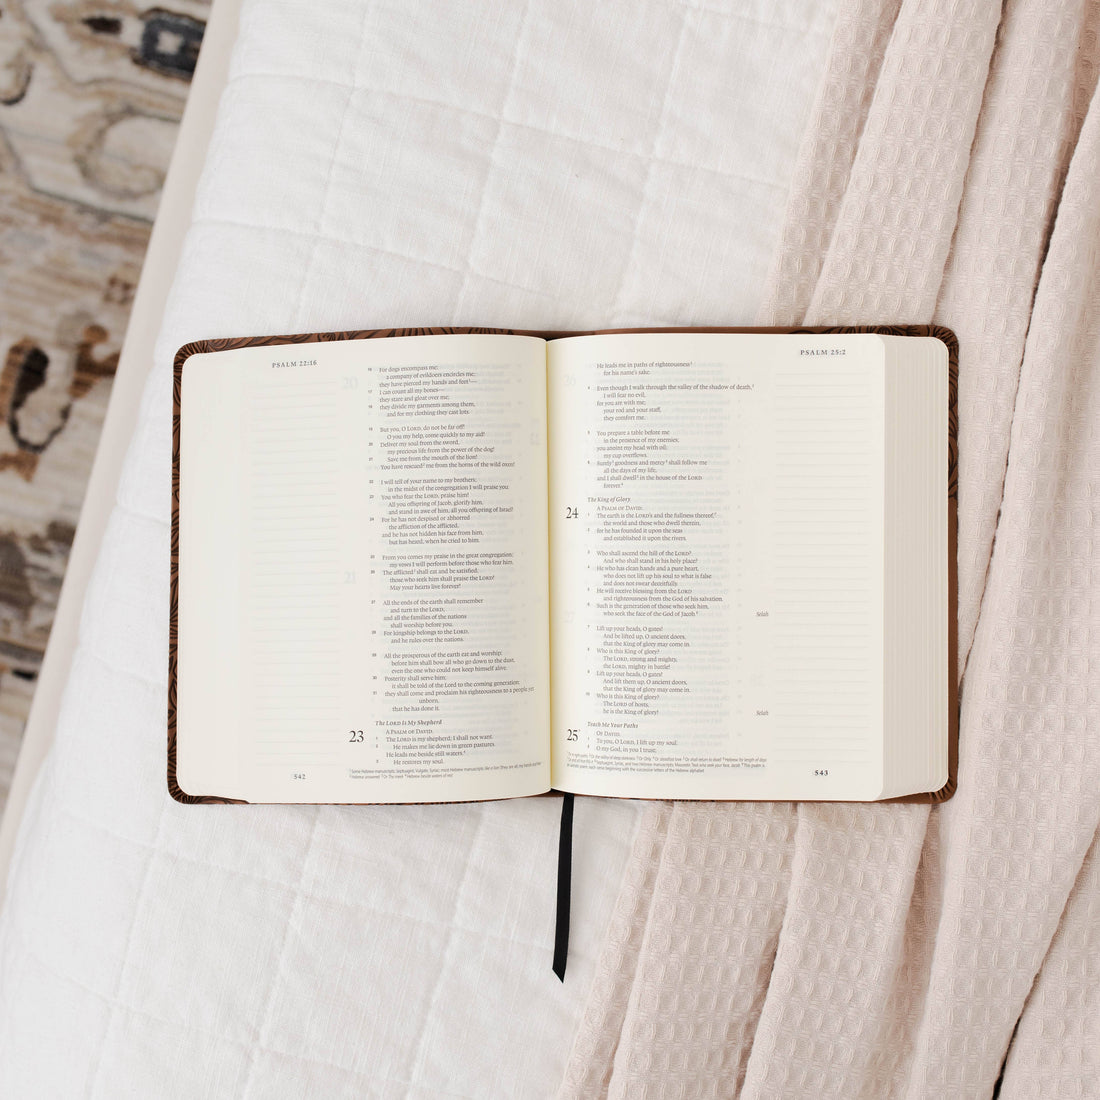 PSALM 22:16
16 For dogs encompass me;
a company of evildoers encircles me;
they have pierced my hands and feet—
17 I can count all my bones—
they stare and gloat over me;
18 they divide my garments among them,
and for my clothing they cast lots.
19 But you, O LORD, do not be far off!
O you my help, come quickly to my aid!
20 Deliver my soul from the sword,
my precious life from the power of the dog!
21 Save me from the mouth of the lion!
You have rescued me from the horns of the wild oxen!
22 I will tell of your name to my brothers;
in the midst of the congregation I will praise you:
23 You who fear the LORD, praise him!
All you offspring of Jacob, glorify him,
and stand in awe of him, all you offspring of Israel!
24 For he has not despised or abhorred
the affliction of the afflicted,
and he has not hidden his face from him,
but has heard, when he cried to him.
25 From you comes my praise in the great congregation;
my vows I will perform before those who fear him.
26 The afflicted shall eat and be satisfied;
those who seek him shall praise the LORD!
May your hearts live forever!
27 All the ends of the earth shall remember
and turn to the LORD,
and all the families of the nations
shall worship before you.
28 For kingship belongs to the LORD,
and he rules over the nations.
29 All the prosperous of the earth eat and worship;
before him shall bow all who go down to the dust,
even the one who could not keep himself alive.
30 Posterity shall serve him;
it shall be told of the Lord to the coming generation;
31 they shall come and proclaim his righteousness to a people yet
unborn,
that he has done it.
THE LORD IS MY SHEPHERD
23 A PSALM OF DAVID.
1 The LORD is my shepherd; I shall not want.
2 He makes me lie down in green pastures.
He leads me beside still waters.
3 He restores my soul.
542
PSALM 25:2
He leads me in paths of righteousness
for his name's sake.
4 Even though I walk through the valley of the shadow of death,
I will fear no evil,
for you are with me;
your rod and your staff,
they comfort me.
5 You prepare a table before me
in the presence of my enemies;
you anoint my head with oil;
my cup overflows.
6 Surely goodness and mercy shall follow me
all the days of my life,
and I shall dwell in the house of the LORD
forever.
The King of Glory
24 A PSALM OF DAVID.
1 The earth is the LORD's and the fullness thereof,
the world and those who dwell therein,
2 for he has founded it upon the seas
and established it upon the rivers.
3 Who shall ascend the hill of the LORD?
And who shall stand in his holy place?
4 He who has clean hands and a pure heart,
who does not lift up his soul to what is false
and does not swear deceitfully.
5 He will receive blessing from the LORD
and righteousness from the God of his salvation.
6 Such is the generation of those who seek him,
who seek the face of the God of Jacob. Selah
7 Lift up your heads, O gates!
And be lifted up, O ancient doors,
that the King of glory may come in.
8 Who is this King of glory?
The LORD, strong and mighty,
the LORD, mighty in battle!
9 Lift up your heads, O gates!
And lift them up, O ancient doors,
that the King of glory may come in.
10 Who is this King of glory?
The LORD of hosts,
he is the King of glory! Selah
Teach Me Your Paths
25 OF DAVID.
1 To you, O LORD, I lift up my soul.
2 O my God, in you I trust;
543